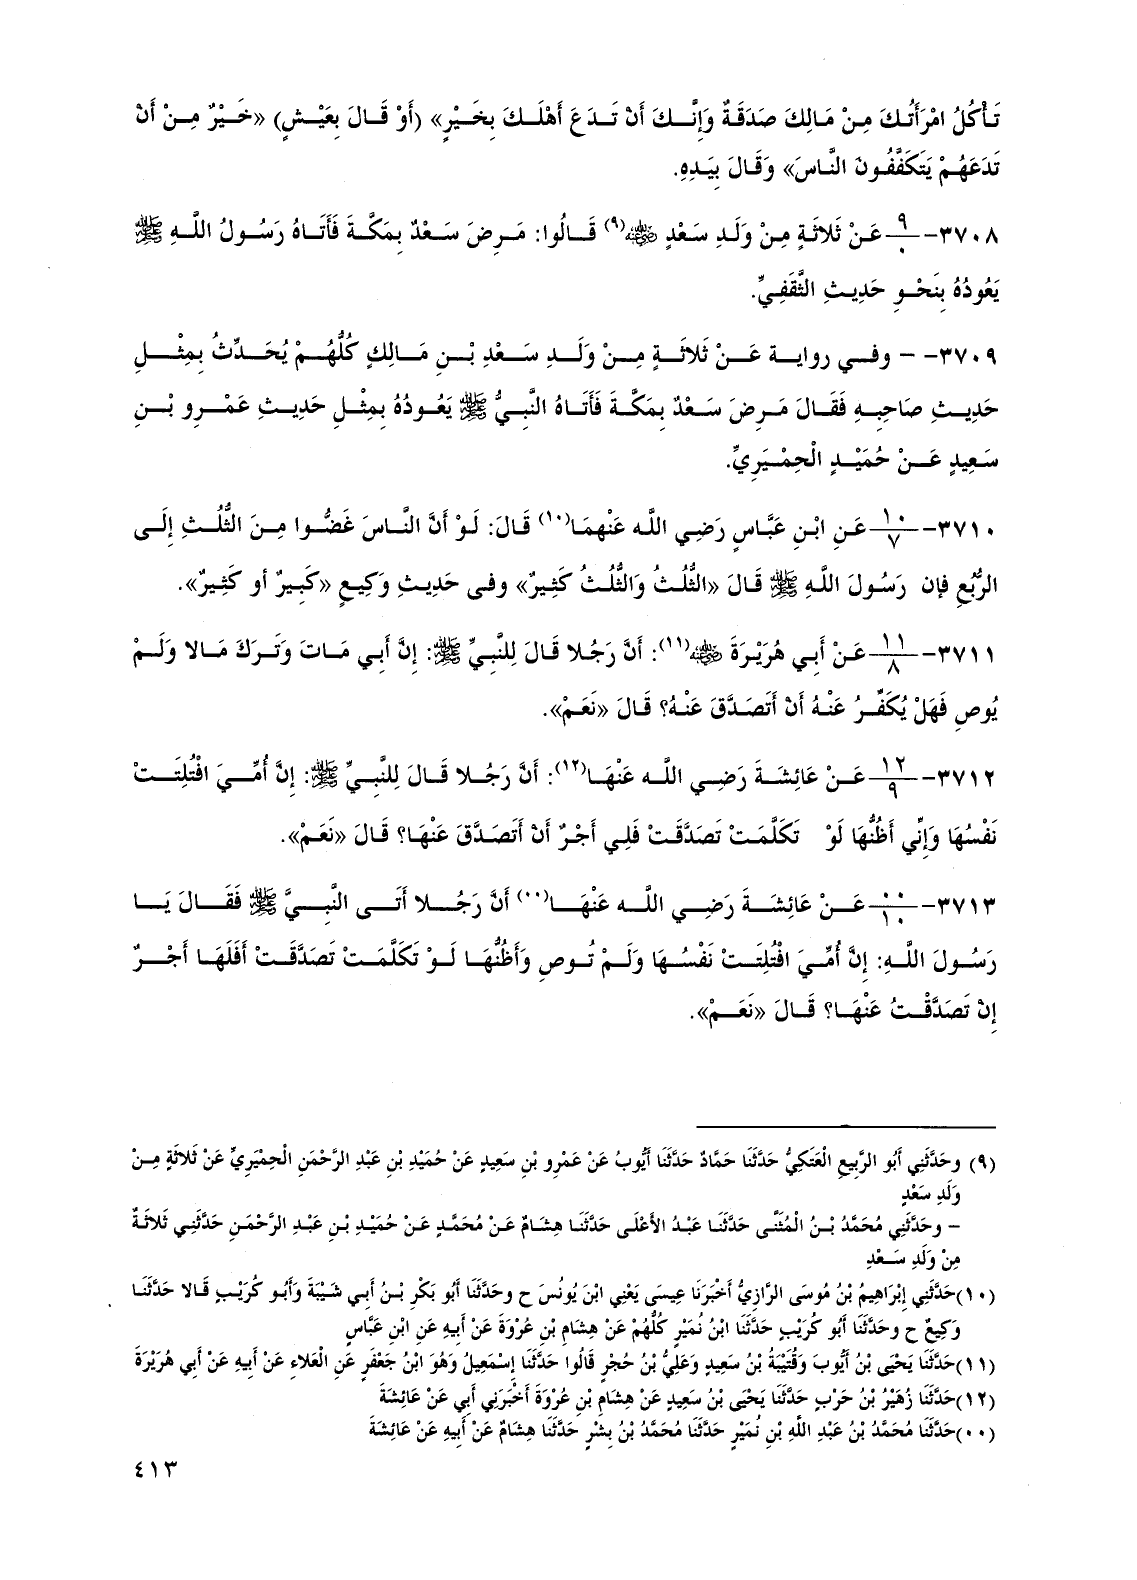 تَأْكُلُ امْرَأَتُكَ مِنْ مَالِكَ صَدَقَةٌ وَإِنَّكَ أَنْ تَدَعَ أَهْلَكَ بِخَيْرٍ» (أَوْ قَالَ بِعَيْشٍ) «خَيْرٌ مِنْ أَنْ
تَدَعَهُمْ يَتَكَفَّفُونَ النَّاسَ» وَقَالَ بِيَدِهِ.
٣٧٠٨- ٩/٠ عَنْ ثَلاثَةٍ مِنْ وَلَدِ سَعْدٍ ﵁(٩) قَالُوا: مَرِضَ سَعْدٌ بِمَكَّةَ فَأَتَاهُ رَسُولُ اللَّهِ ﷺ
يَعُودُهُ بِنَحْوِ حَدِيثِ الثَّقَفِيِّ.
٣٧٠٩- - وفي رواية عَنْ ثَلاثَةٍ مِنْ وَلَدِ سَعْدِ بْنِ مَالِكٍ كُلُّهُمْ يُحَدِّثُ بِمِثْلِ
حَدِيثِ صَاحِبِهِ فَقَالَ مَرِضَ سَعْدٌ بِمَكَّةَ فَأَتَاهُ النَّبِيُّ ﷺ يَعُودُهُ بِمِثْلِ حَدِيثِ عَمْرِو بْنِ
سَعِيدٍ عَنْ حُمَيْدٍ الْحِمْيَرِيِّ.
٣٧١٠- ١٠/٧ عَنِ ابْنِ عَبَّاسٍ رَضِي اللَّه عَنْهمَا(١٠) قَالَ: لَوْ أَنَّ النَّاسَ غَضُّوا مِنَ الثُّلُثِ إِلَى
الرُّبُعِ فإن رَسُولَ اللَّهِ ﷺ قَالَ «الثُّلُثُ وَالثُّلُثُ كَثِيرٌ» وفى حَدِيثِ وَكِيعٍ «كَبِيرٌ أو كَثِيرٌ».
٣٧١١- ١١/٨ عَنْ أَبِي هُرَيْرَةَ ﵁(١١): أَنَّ رَجُلا قَالَ لِلنَّبِيِّ ﷺ: إِنَّ أَبِي مَاتَ وَتَرَكَ مَالا وَلَمْ
يُوصِ فَهَلْ يُكَفِّرُ عَنْهُ أَنْ أَتَصَدَّقَ عَنْهُ؟ قَالَ «نَعَمْ».
٣٧١٢- ١٢/٩ عَنْ عَائِشَةَ رَضِي اللَّه عَنْهَا(١٢): أَنَّ رَجُلا قَالَ لِلنَّبِيِّ ﷺ: إِنَّ أُمِّيَ افْتُلِتَتْ
نَفْسُهَا وَإِنِّي أَظُنُّهَا لَوْ تَكَلَّمَتْ تَصَدَّقَتْ فَلِي أَجْرٌ أَنْ أَتَصَدَّقَ عَنْهَا؟ قَالَ «نَعَمْ».
٣٧١٣- ٠٠/١٠ عَنْ عَائِشَةَ رَضِي اللَّه عَنْهَا(٠٠) أَنَّ رَجُلا أَتَى النَّبِيَّ ﷺ فَقَالَ يَا
رَسُولَ اللَّهِ: إِنَّ أُمِّيَ افْتُلِتَتْ نَفْسُهَا وَلَمْ تُوصِ وَأَظُنُّهَا لَوْ تَكَلَّمَتْ تَصَدَّقَتْ أَفَلَهَا أَجْرٌ
إِنْ تَصَدَّقْتُ عَنْهَا؟ قَالَ «نَعَمْ».
(٩) وحَدَّثَنِي أَبُو الرَّبِيعِ الْعَتَكِيُّ حَدَّثَنَا حَمَّادٌ حَدَّثَنَا أَيُّوبُ عَنْ عَمْرِو بْنِ سَعِيدٍ عَنْ حُمَيْدِ بْنِ عَبْدِ الرَّحْمَنِ الْحِمْيَرِيِّ عَنْ ثَلاثَةٍ مِنْ
وَلَدِ سَعْدٍ
– وحَدَّثَنِي مُحَمَّدُ بْنُ الْمُثَنَّى حَدَّثَنَا عَبْدُ الأَعْلَى حَدَّثَنَا هِشَامٌ عَنْ مُحَمَّدٍ عَنْ حُمَيْدِ بْنِ عَبْدِ الرَّحْمَنِ حَدَّثَنِي ثَلاثَةٌ
مِنْ وَلَدِ سَعْدٍ
(١٠)حَدَّثَنِي إِبْرَاهِيمُ بْنُ مُوسَى الرَّازِيُّ أَخْبَرَنَا عِيسَى يَعْنِي ابْنَ يُونُسَ ح وحَدَّثَنَا أَبُو بَكْرِ بْنُ أَبِي شَيْبَةَ وَأَبُو كُرَيْبٍ قَالا حَدَّثَنَا
وَكِيعٌ ح وحَدَّثَنَا أَبُو كُرَيْبٍ حَدَّثَنَا ابْنُ نُمَيْرٍ كُلُّهُمْ عَنْ هِشَامِ بْنِ عُرْوَةَ عَنْ أَبِيهِ عَنِ ابْنِ عَبَّاسٍ
(١١)حَدَّثَنَا يَحْيَى بْنُ أَيُّوبَ وَقُتَيْبَةُ بْنُ سَعِيدٍ وَعَلِيُّ بْنُ حُجْرٍ قَالُوا حَدَّثَنَا إِسْمَعِيلُ وَهُوَ ابْنُ جَعْفَرٍ عَنِ الْعَلاءِ عَنْ أَبِيهِ عَنْ أَبِي هُرَيْرَةَ
(١٢)حَدَّثَنَا زُهَيْرُ بْنُ حَرْبٍ حَدَّثَنَا يَحْيَى بْنُ سَعِيدٍ عَنْ هِشَامِ بْنِ عُرْوَةَ أَخْبَرَنِي أَبِي عَنْ عَائِشَةَ
(٠٠)حَدَّثَنَا مُحَمَّدُ بْنُ عَبْدِ اللَّهِ بْنِ نُمَيْرٍ حَدَّثَنَا مُحَمَّدُ بْنُ بِشْرٍ حَدَّثَنَا هِشَامٌ عَنْ أَبِيهِ عَنْ عَائِشَةَ
٤١٣